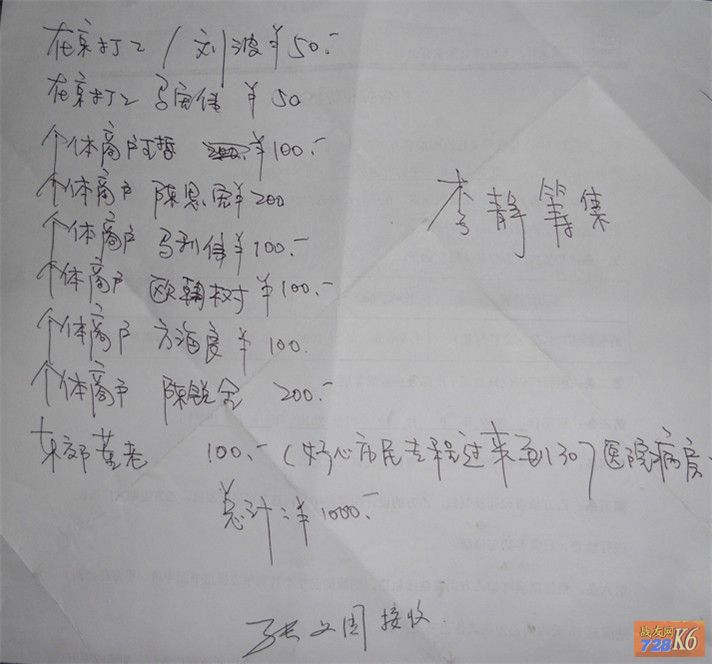 在京打工 刘波 ¥50.-
在京打工 马宝伟 ¥50
个体商户 王哲 ¥100.-
个体商户 陈恩宏 ¥200
个体商户 马利伟 ¥100.-
个体商户 欧翰树 ¥100.-
个体商户 方海良 ¥100.
个体商户 陈锐金 200.-
东郊 董老 100.- (好心市民专程过来到307医院病房
总计:¥1000.-
李静筹集
张文周 接收.
战友网
728 K6